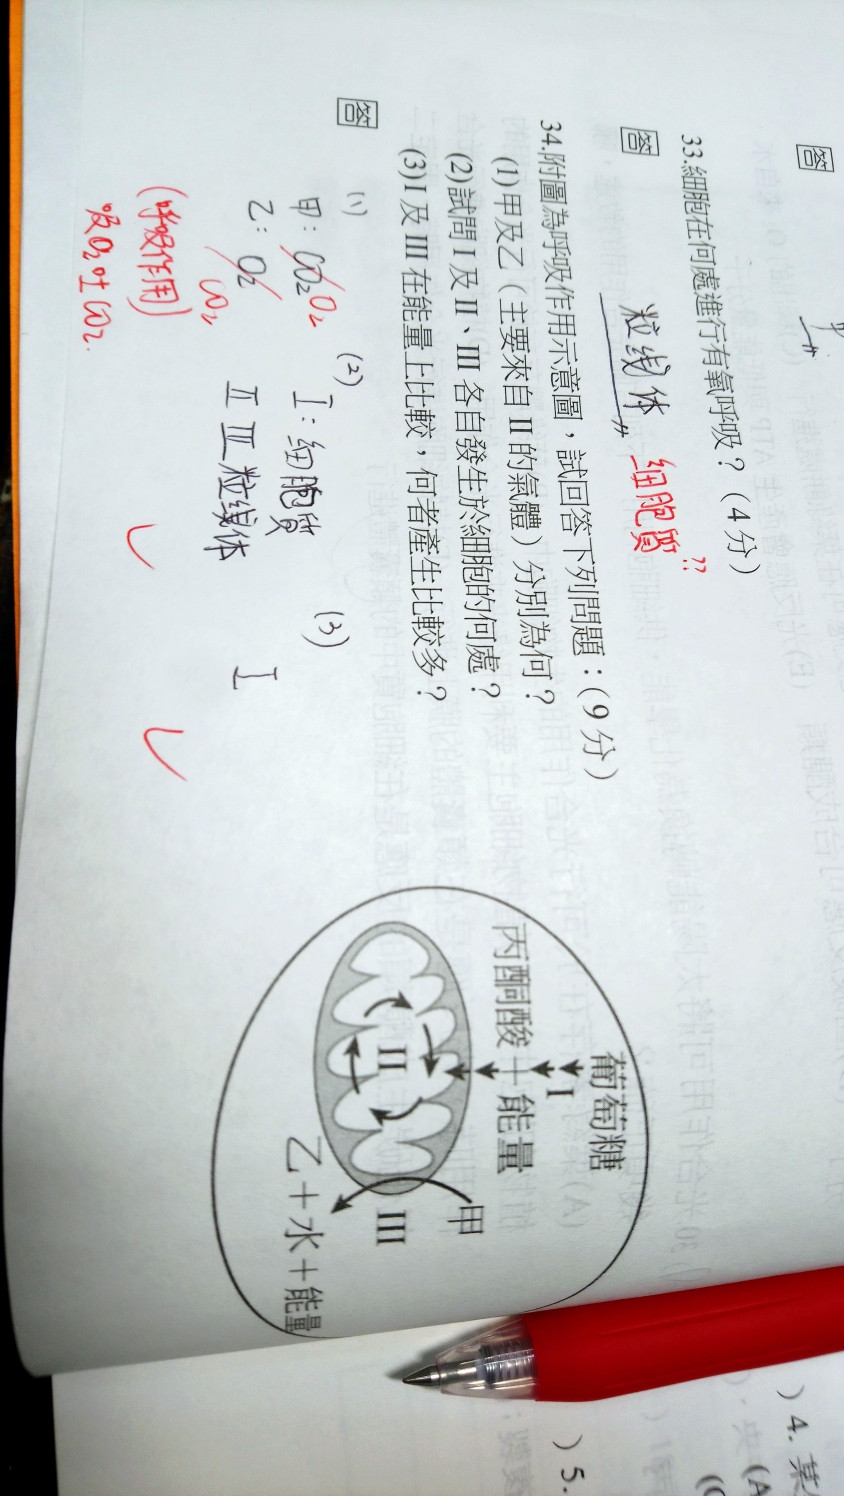 答
33.細胞在何處進行有氧呼吸？(4分)
答
粒线体 细胞質??
34.附圖為呼吸作用示意圖，試回答下列問題：(9分)
(1)甲及乙（主要來自II的氣體）分別為何？
(2)試問I及II、III各自發生於細胞的何處？
(3)I及III在能量上比較，何者產生比較多？
答
(1)
甲：CO₂ O₂
乙：O₂ CO₂
(呼吸作用)
吸O₂吐CO₂.
(2)
I：细胞質
II III 粒线体
(3)
I
葡萄糖
I
丙酮酸＋能量
II
甲
III
乙＋水＋能量
)4.某
)5.
(A